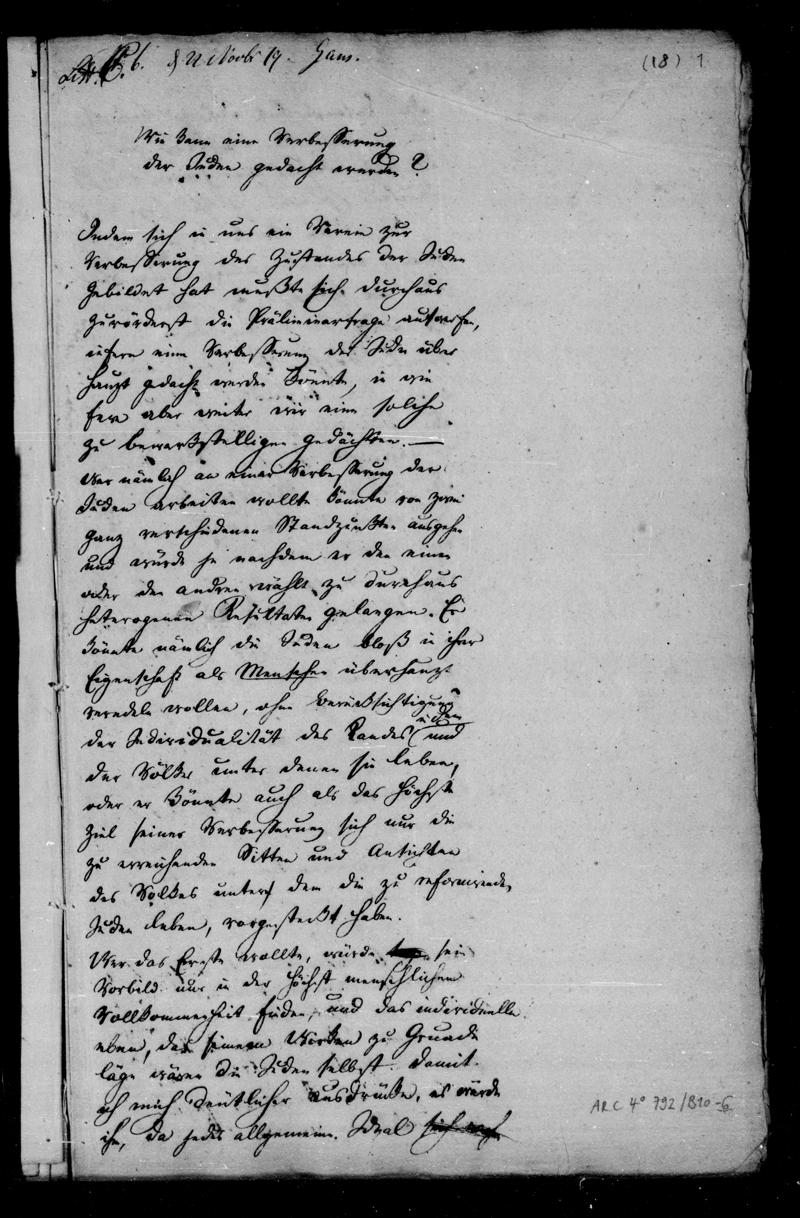 Litt. B. 6. d 21 Novbr 19. Gans.
(18) 1
Wie kann eine Verbesserung
der Juden gedacht werden?
Indem sich in uns ein Verein zur
Verbesserung des Zustandes der Juden
gebildet hat mußte sich durchaus
zuvörderst die Präliminarfrage aufwerfen,
infern eine Verbesserung der Juden über
haupt gedacht werden könnte, in wie
fern aber weiter wir eine solche
zu bewerkstelligen gedächten. —
Wer nämlich an einer Verbesserung der
Juden arbeiten wollte könnte von zwei
ganz verschiedenen Standpunkten ausgehn
und würde je nachdem er den einen
oder den andren wählt zu durchaus
heterogenen Resultaten gelangen. Er
könnte nämlich die Juden bloß in ihrer
Eigenschaft als Menschen überhaupt
veredeln wollen, ohne Berücksichtigung
der Individualität des Landes und
der Völker unter denen sie leben,
oder er könnte auch als das höchste
Ziel seiner Verbesserung sich nur die
zu erreichenden Sitten und Ansichten
des Volkes unter dem die zu reformirenden
Juden leben, vorgesteckt haben.
Wer das Erste wollte, würde sein
Vorbild nur in der höchst menschlichen
Vollkommenheit finden, und das individuelle
eben, das seinem Wirken zu Grunde
läge wären die Juden selbst. Damit
ich mich deutlicher ausdrücke, es würde
ihm, da jedes allgemeine Ideal
ARC 4° 792/B10-6